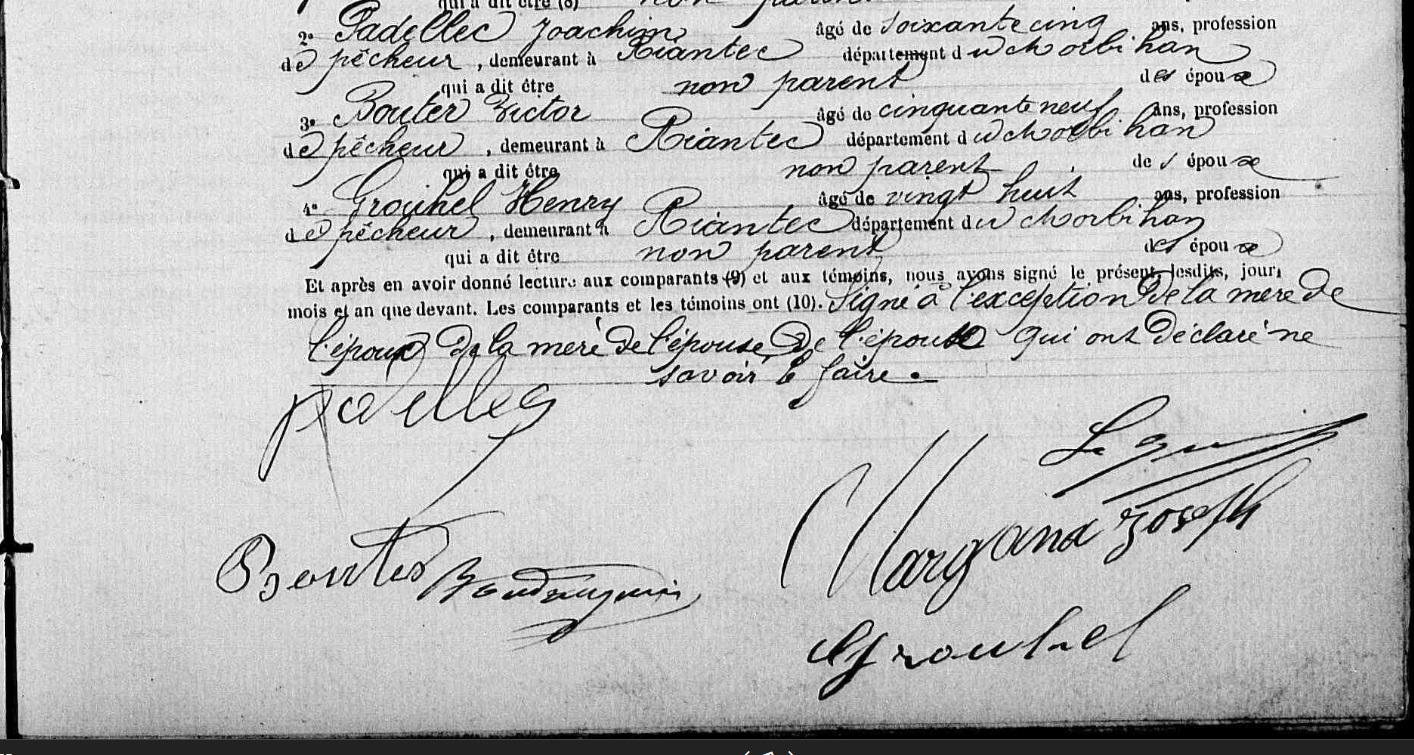 qui a dit être (8) non parent
2º Padellec Joachim âgé de soixante cinq ans, profession
de pêcheur, demeurant à Riantec département du Morbihan
qui a dit être non parent des époux
3º Bouter Victor âgé de cinquante neuf ans, profession
de pêcheur, demeurant à Riantec département du Morbihan
qui a dit être non parent des époux
4º Grouhel Henry âgé de vingt huit ans, profession
de pêcheur, demeurant à Riantec département du Morbihan
qui a dit être non parent des époux
Et après en avoir donné lecture aux comparants (9) et aux témoins, nous avons signé le présent, lesdits, jour,
mois et an que devant. Les comparants et les témoins ont (10). Signé à l'exception de la mère de
l'époux de la mère de l'épouse, de l'épouse qui ont déclaré ne
savoir le faire.
Padellec
Margana Joseph
Bouter
Grouhel